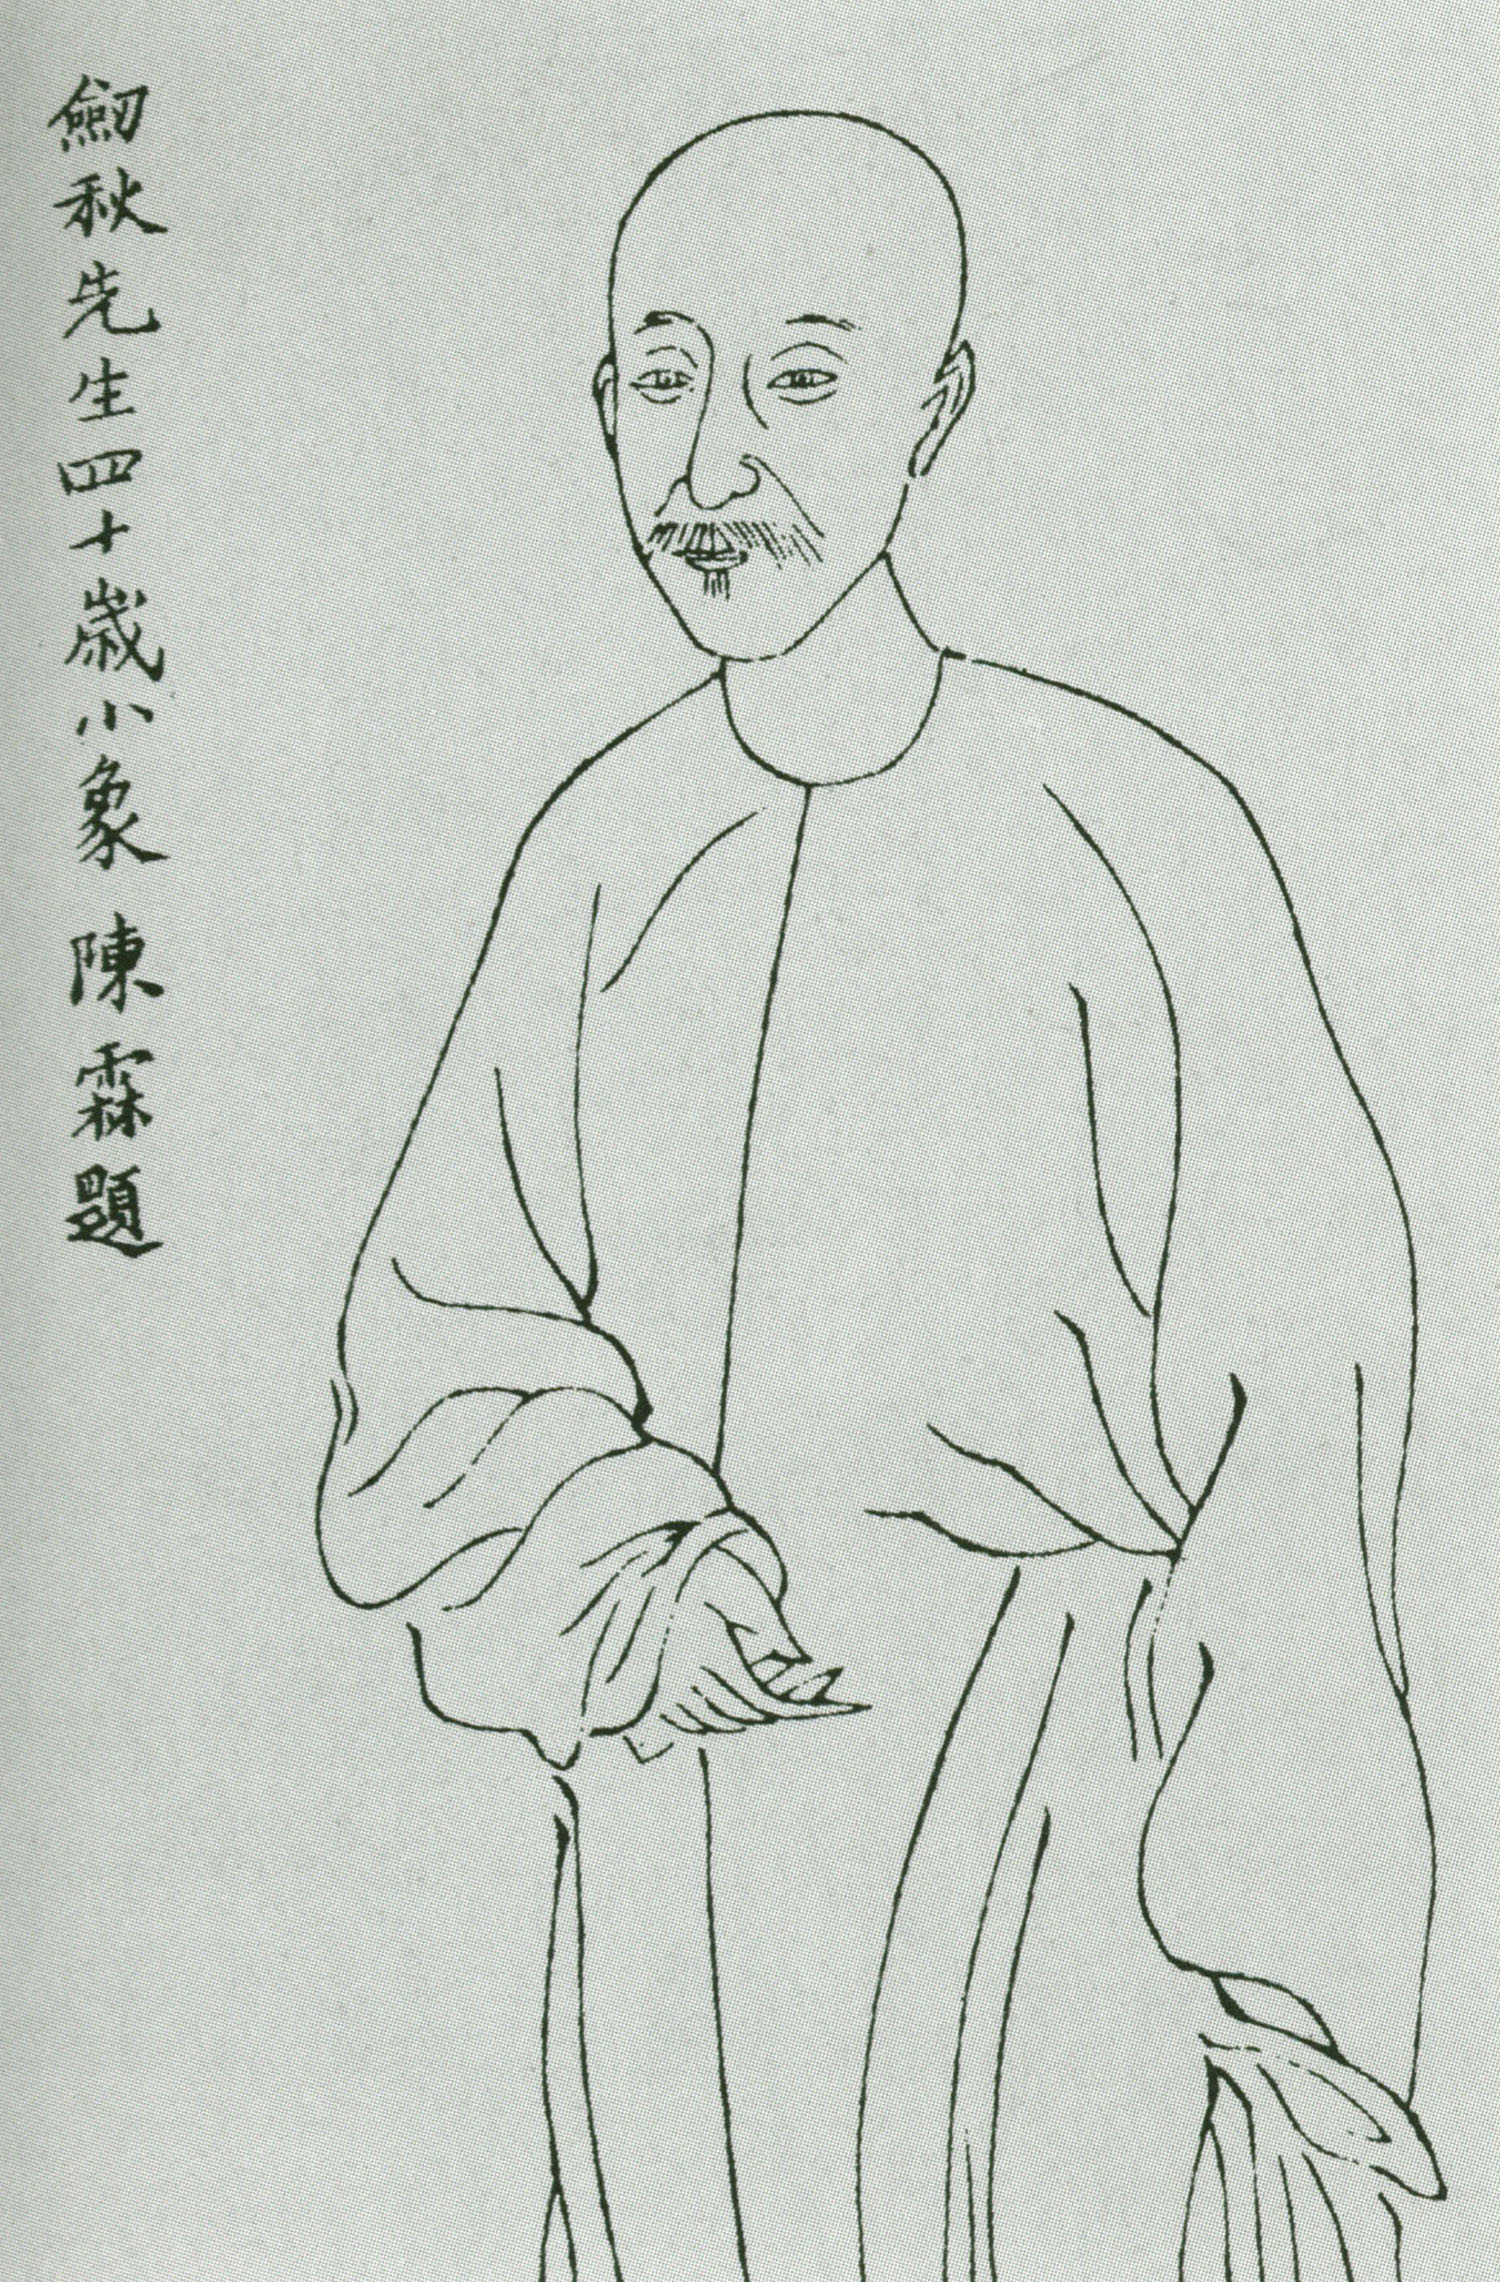 劒秋先生四十歲小象 陳霖題